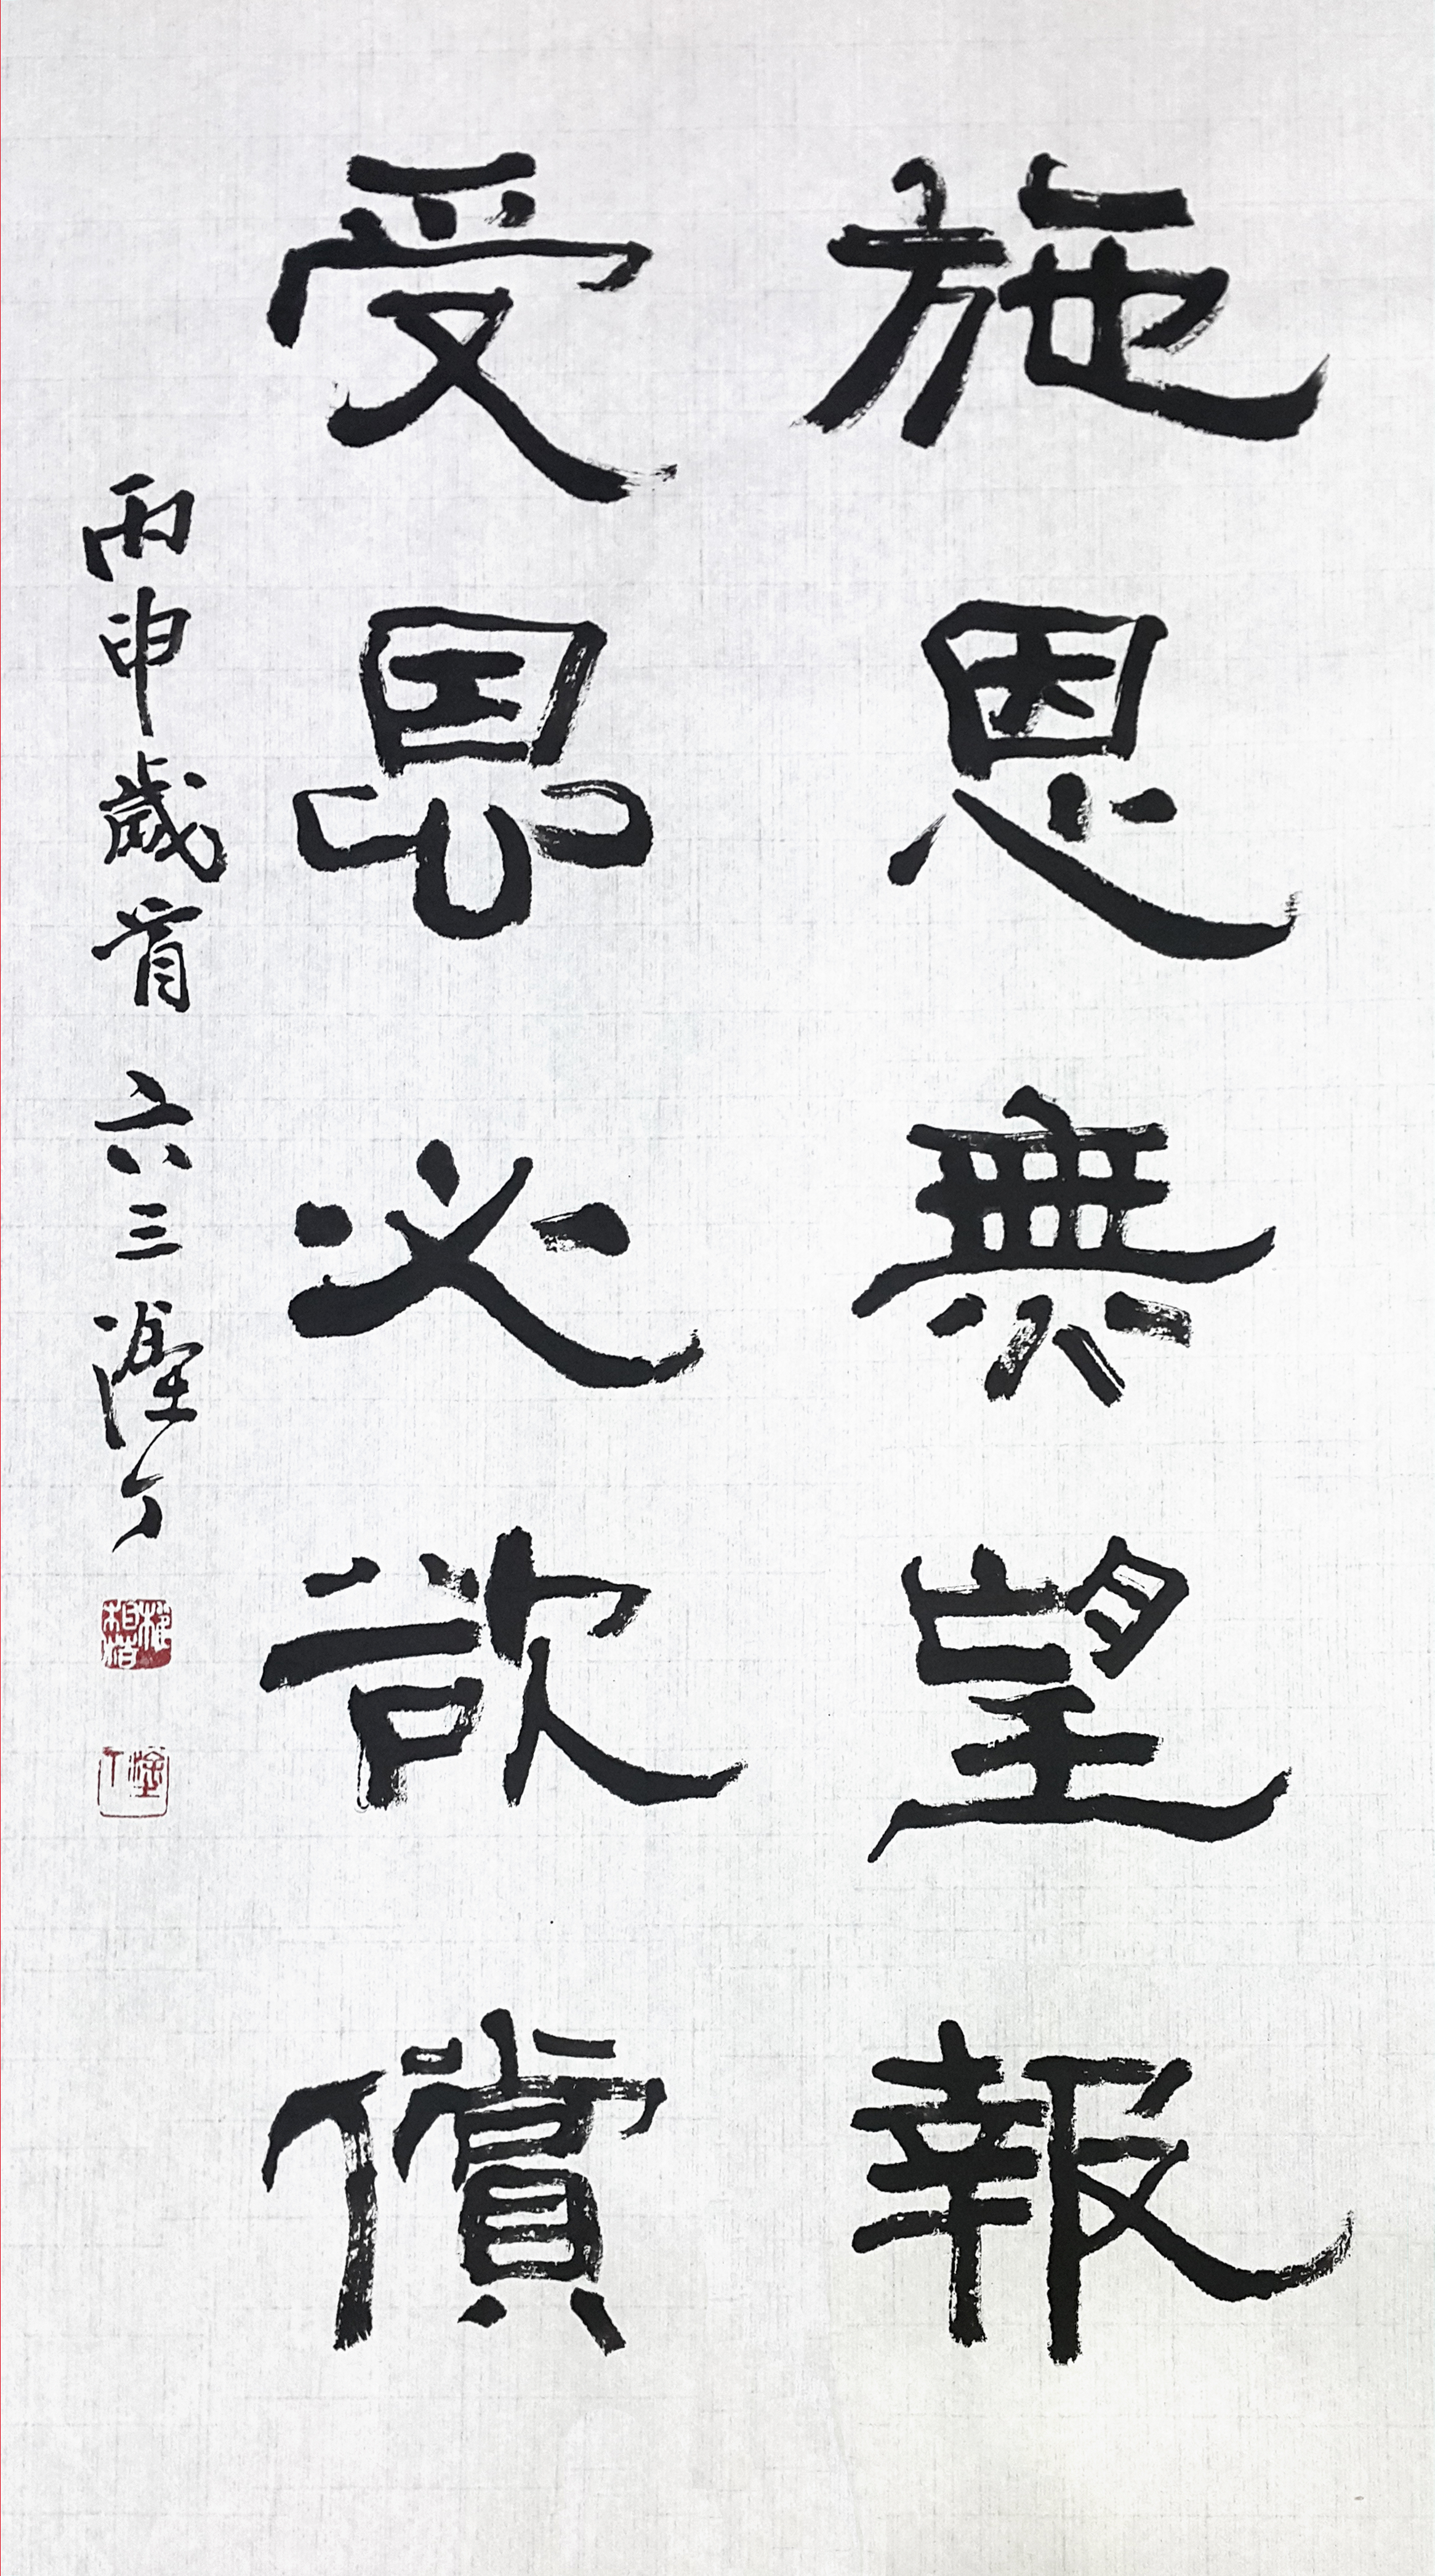 施恩無望報
受恩必欲償
丙申歲首 六三溼丁